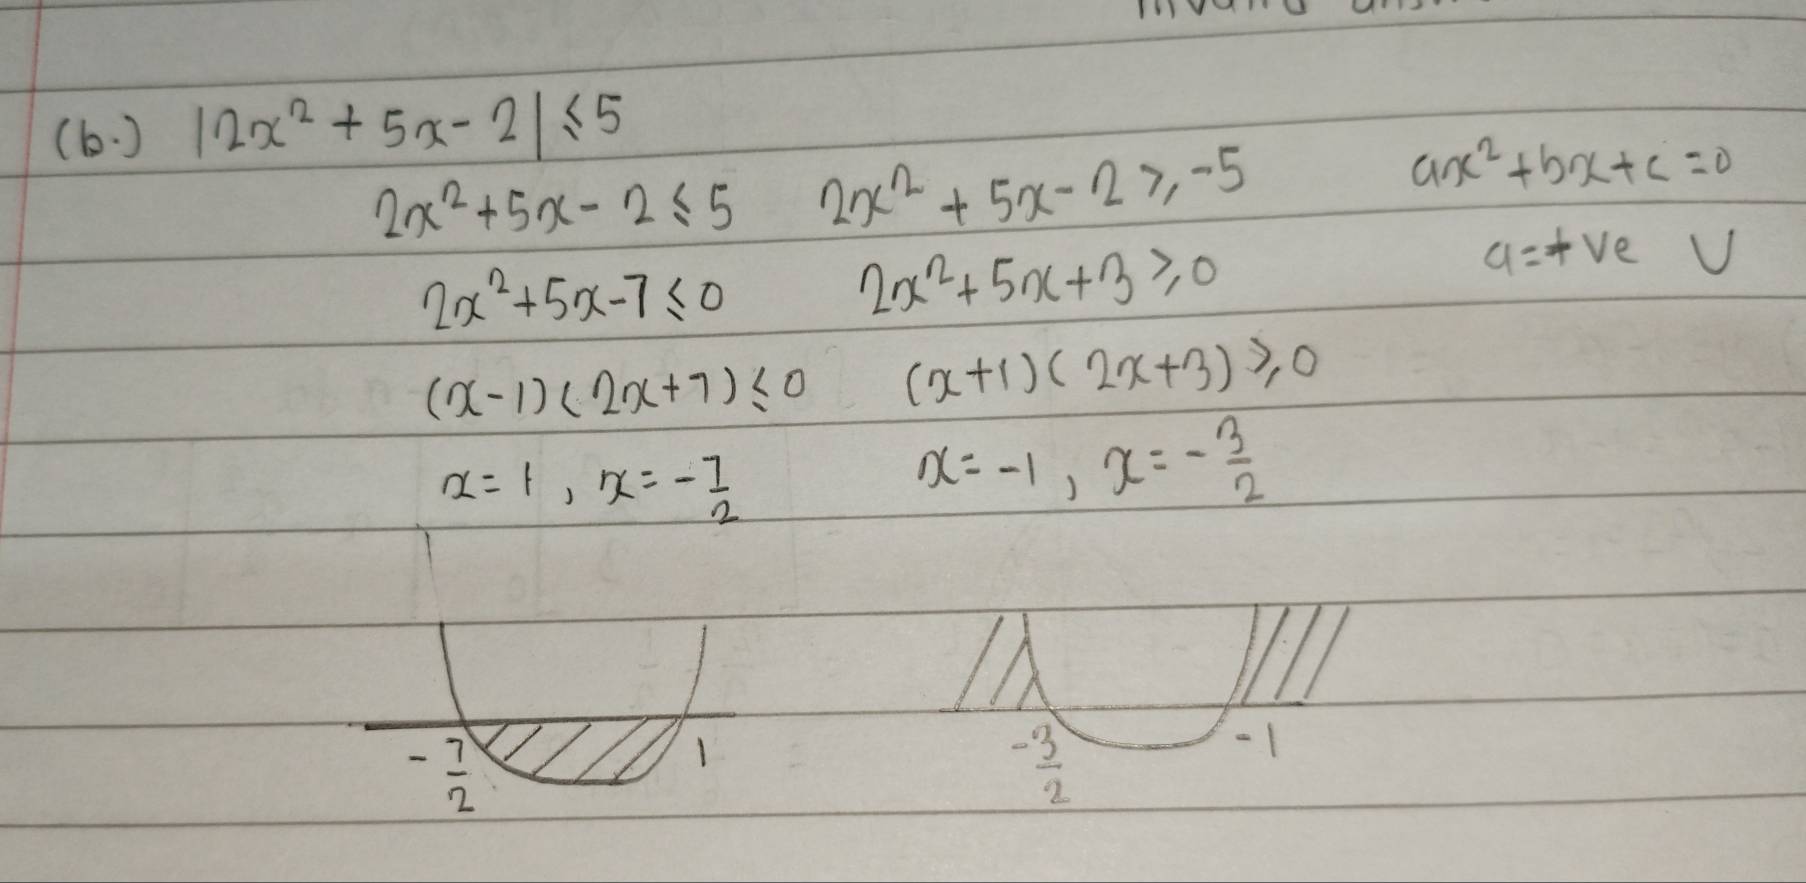 (b.) |2x² + 5x - 2| ≤ 5
2x² + 5x - 2 ≤ 5 2x² + 5x - 2 ≥ -5 ax² + bx + c = 0
2x² + 5x - 7 ≤ 0 2x² + 5x + 3 ≥ 0 a = +ve ∪
(x-1)(2x+7) ≤ 0 (x+1)(2x+3) ≥ 0
x = 1, x = -7/2 x = -1, x = -3/2
-7/2 1 -3/2 -1